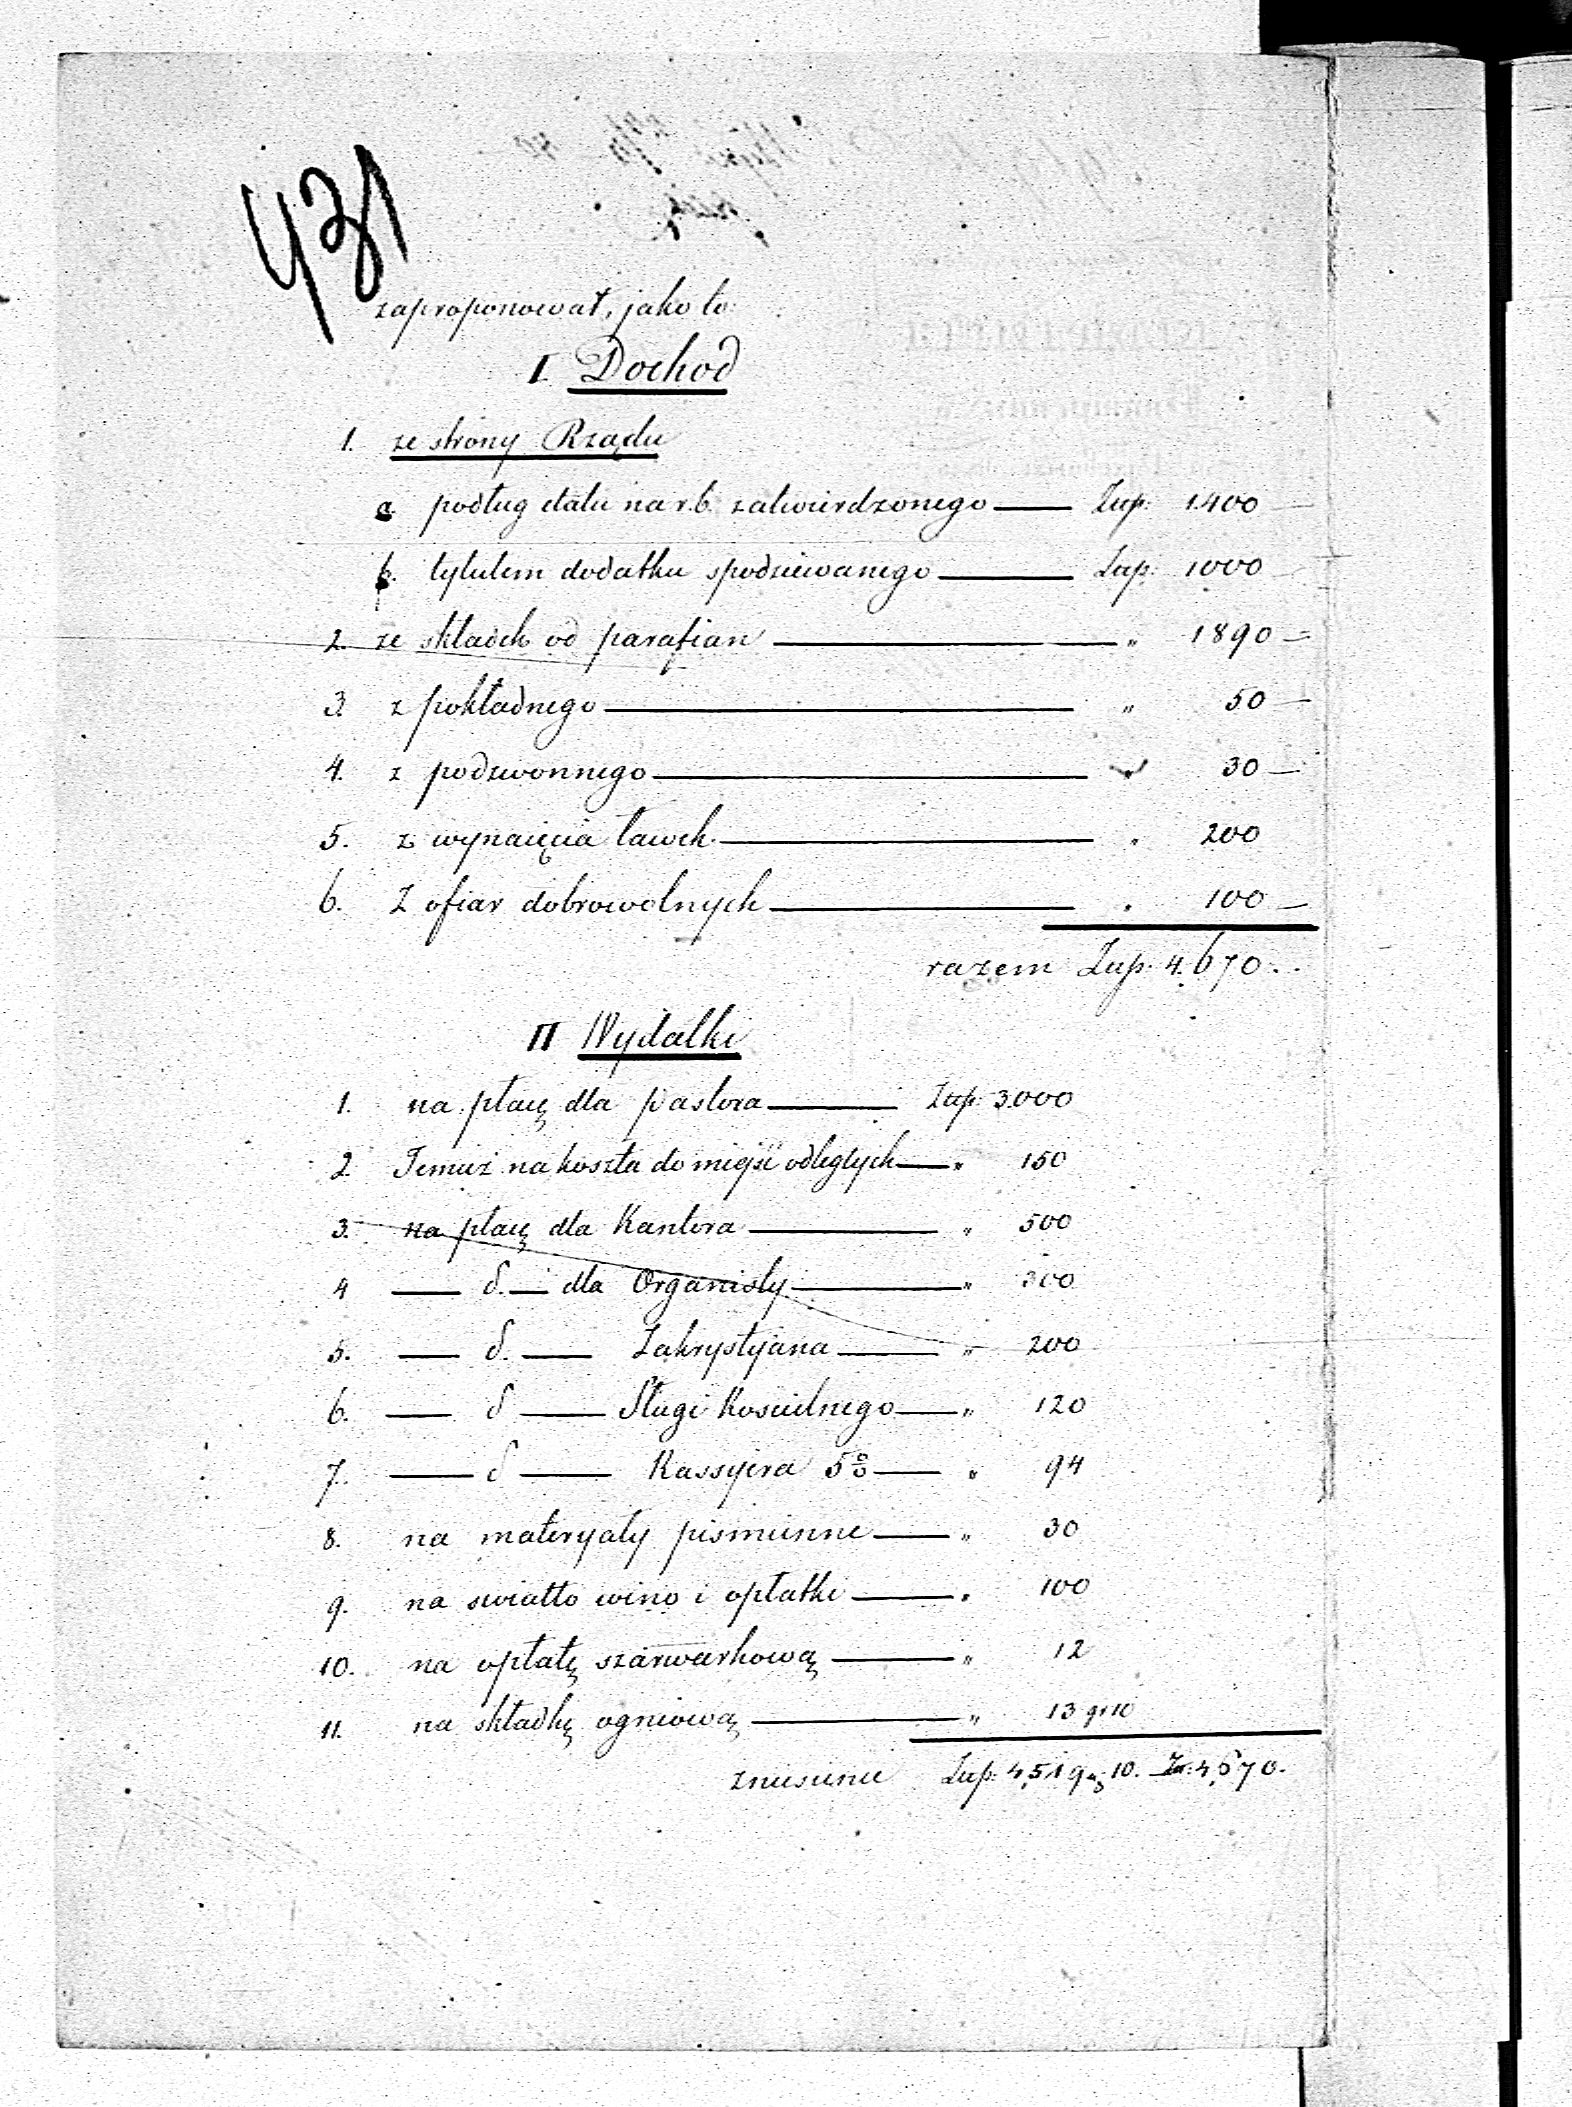 431
zaproponował, jako to:
I. Dochod
1. ze strony Rządu
a. podług etatu na r.b. zatwierdzonego — Złp. 1.400 —
b. tytułem dodatku spodziewanego — Złp. 1000 —
2. ze składek od parafian — " 1890 —
3. z pokładnego — " 50 —
4. z podzwonnego — " 30 —
5. z wynaięcia ławek. — " 200
6. Z ofiar dobrowolnych — " 100 —
razem Złp. 4.670.
II Wydatki
1. na płacę dla pastora — Złp. 3.000
2 Temuż na koszta do miejsc odległych — " 150
3. na płacę dla Kantora — " 500
4 — d. — dla Organisty — " 300
5. — d. — Zakrystyana — " 200
6. — d — Sługi Kościelnego — " 120
7. — d — Kassyera 5% — " 94
8. na materyały piśmienne — " 30
9. na swiatło wino i opłatki — " 100
10. na opłatę szarwarkową — " 12
11. na składkę ogniową — " 13 gr 10
zniesienie Złp. 4,519 g 10. Zł. 4,670.